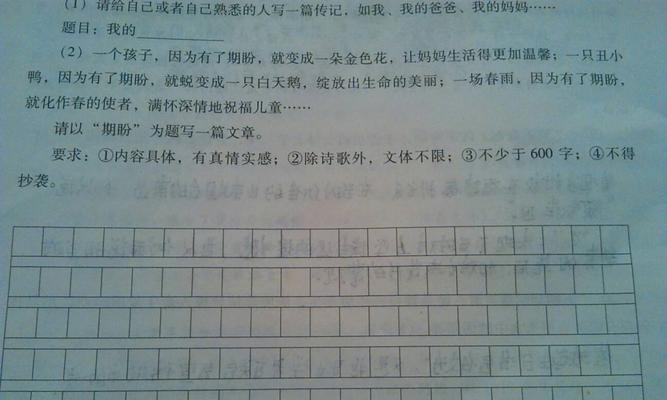 （1）请给自己或者自己熟悉的人写一篇传记，如我、我的爸爸、我的妈妈……
题目：我的__________
（2）一个孩子，因为有了期盼，就变成一朵金色花，让妈妈生活得更加温馨；一只丑小
鸭，因为有了期盼，就蜕变成一只白天鹅，绽放出生命的美丽；一场春雨，因为有了期盼，
就化作春的使者，满怀深情地祝福儿童……
请以“期盼”为题写一篇文章。
要求：①内容具体，有真情实感；②除诗歌外，文体不限；③不少于 600 字；④不得
抄袭。